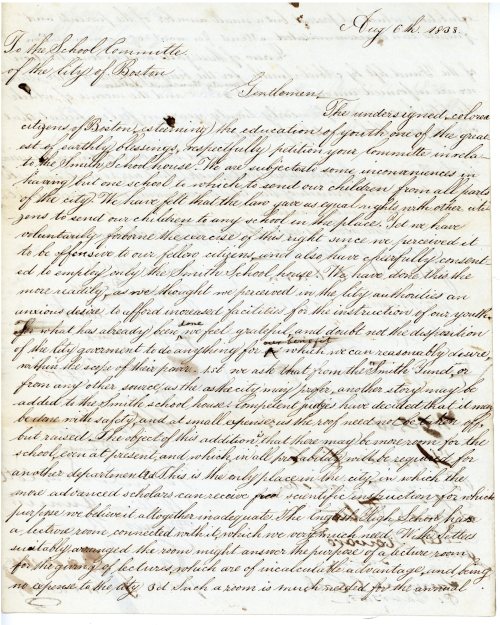 Aug 6th. 1838.
To the School Committe
of the City of Boston
Gentlemen
The undersigned, colored
citizens of Boston, esteeming the education of youth one of the great-
est of earthly blessings, respectfully petition your Committe in rela-
to the Smith School house. We are subjected to some inconveniences in
having but one school to which to send our children from all parts
of the city. We have felt that the law gave us equal rights with other citi-
zens to send our children to any school in the place. Yet we have
voluntarily forborne the exercise of this right since we perceived it
to be offensive to our fellow citizens, and also have cheerfully consent-
ed to employ only the Smith School house. We have done this the
more readily, as we thought we perceived in the city authorities an
anxious desire to afford increased facilities for the instruction of our youth.
For what has already been done we feel grateful, and doubt not the disposition
of the city goverment to do anything for our benefit which we can reasonably desire,
within the scope of their power. 1st we ask that from the Smith Fund, or
from any other source, as the as the city may prefer, another story may be
added to the Smith school house. Competent judges have decided that it may
be done with safety, and at small expense; as the roof need not be taken off,
but raised. The object of this addition is that there may be more room for the
school, even at present, and which, in all probability will be required for
another department. 2d This is the only place in the city in which the
more advanced scholars can receive scientific instruction for which
purpose we believe it altogether inadequate. The High School has
a lecture room, connected with it, which we very much need. With settees
suitably arranged the room might answer the purpose of a lecture room
for the giving of lectures, which are of incalculable advantage, and being
no expense to the city. 3d Such a room is much needed for the annual